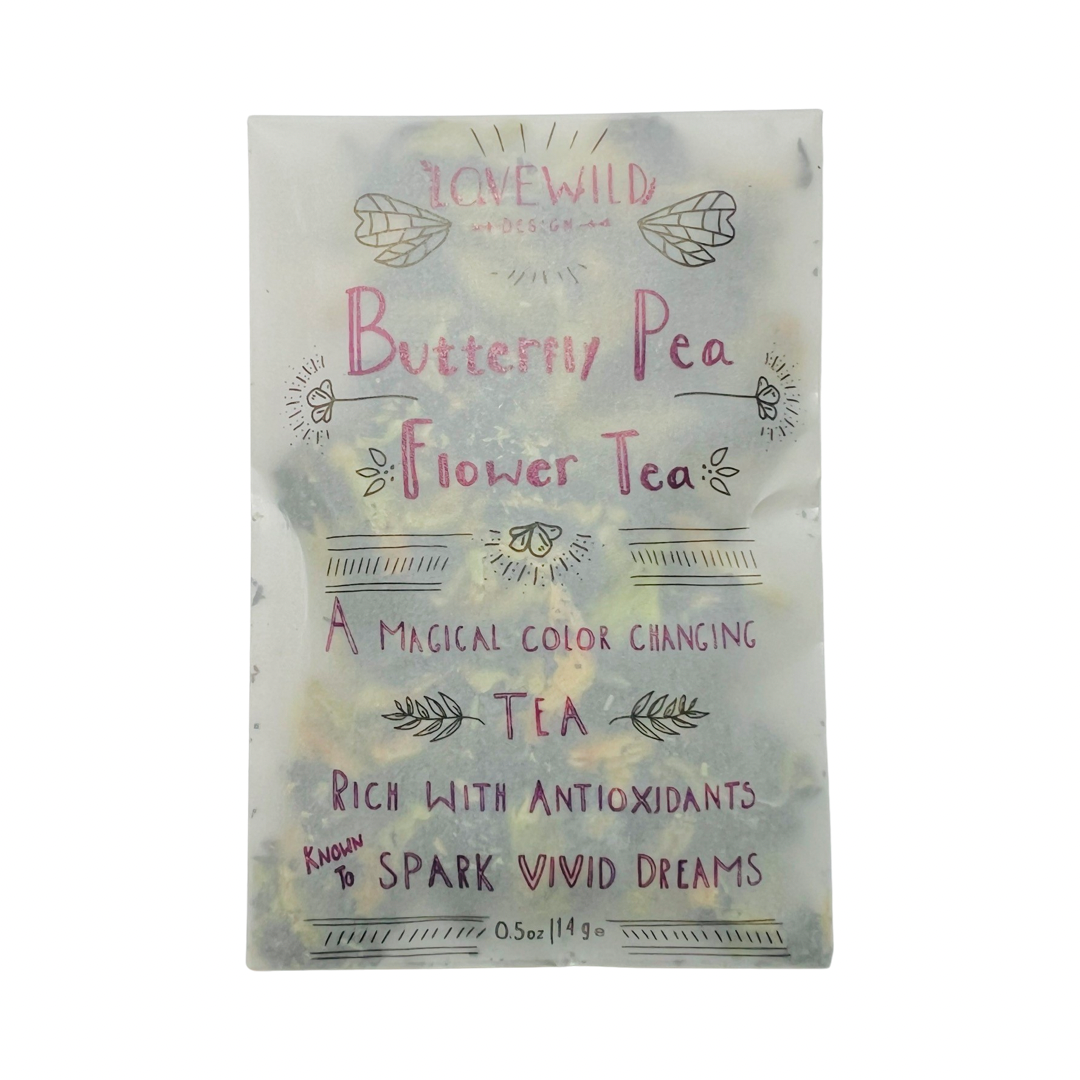 LOVEWILD
DESIGN
Butterfly Pea
Flower Tea
A MAGICAL COLOR CHANGING
TEA
RICH WITH ANTIOXIDANTS
KNOWN
TO SPARK VIVID DREAMS
0.5oz|14g℮